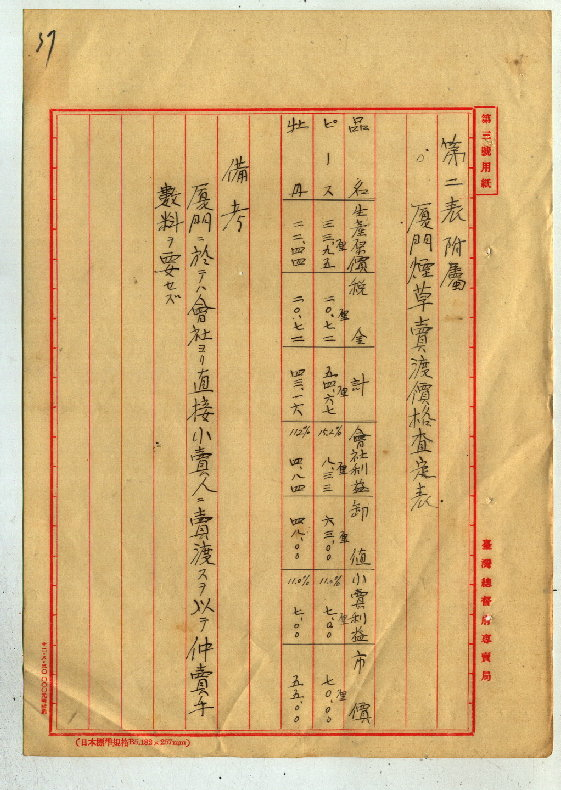 37
第三號用紙
第二表附屬
厦門煙草賣渡價格査定表
品名 生產原價 税金 計 會社利益 卸値 小賣利益 市價
ピース 三三、九五厘 二〇、七二厘 五四、六七厘 15.2% 八、三三厘 六三、〇〇厘 11.0% 七、〇〇厘 七〇、〇〇厘
牡丹 二二、四四 二〇、七二 四三、一六 11.2% 四、八四 四八、〇〇 11.0% 七、〇〇 五五、〇〇
備考
厦門ニ於テハ會社ヨリ直接小賣人ニ賣渡スヲ以テ仲賣手
數料ヲ要セズ
臺灣總督府專賣局
(日本標準規格B5.182×257mm)